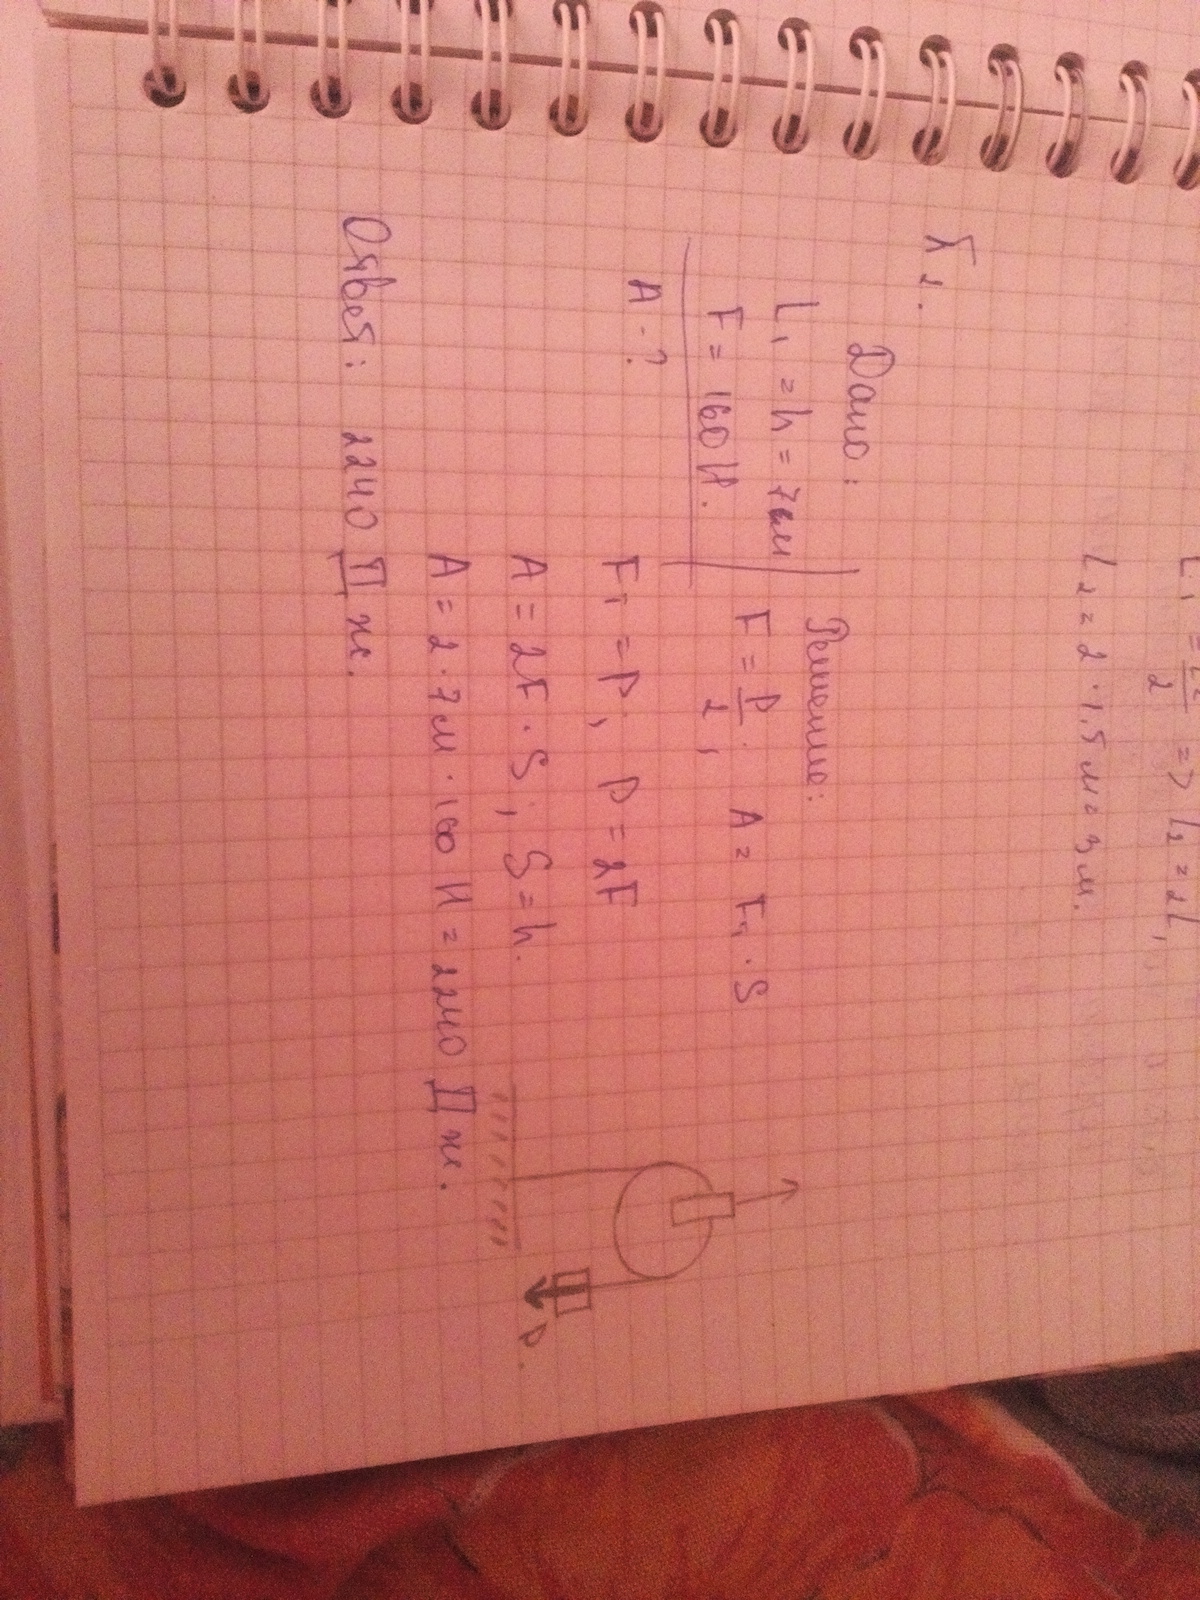 L₁ = L₂/2 => L₂ = 2L₁
L₂ = 2 · 1,5 м = 3 м.
Дано:
L₁ = h = 7 м
F = 160 Н.
A - ?
Решение:
F = P/2, A = Fт · S
Fт = P, P = 2F
A = 2F · S; S = h.
A = 2 · 7 м · 160 Н = 2240 Дж.
P.
Ответ: 2240 Дж.